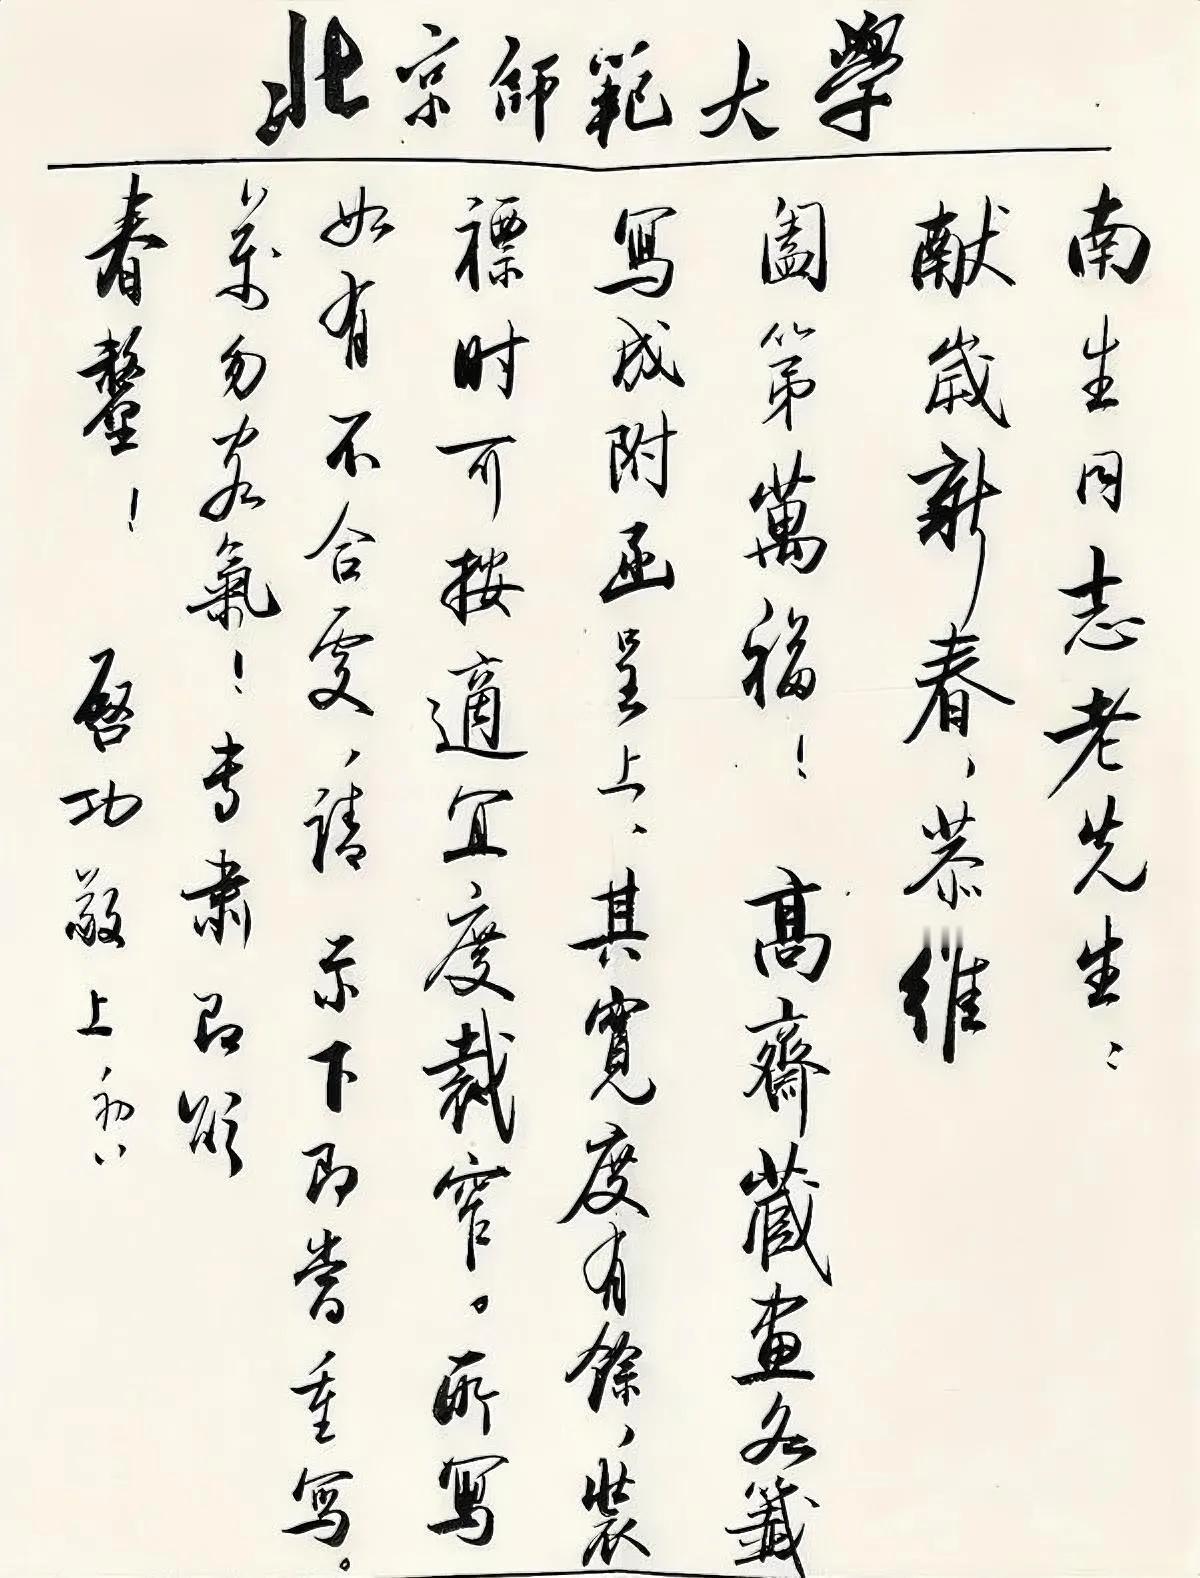 北京師範大學
南生同志老先生：
献歲新春，恭維
闔第萬福！高齋藏畫名籤
寫成附函呈上，其寬度有餘，裝
褾时可按適宜度裁窄。所寫
如有不合處，請示下即當重寫。
萬勿客氣！专肅即頌
春釐！ 啓功敬上 初八